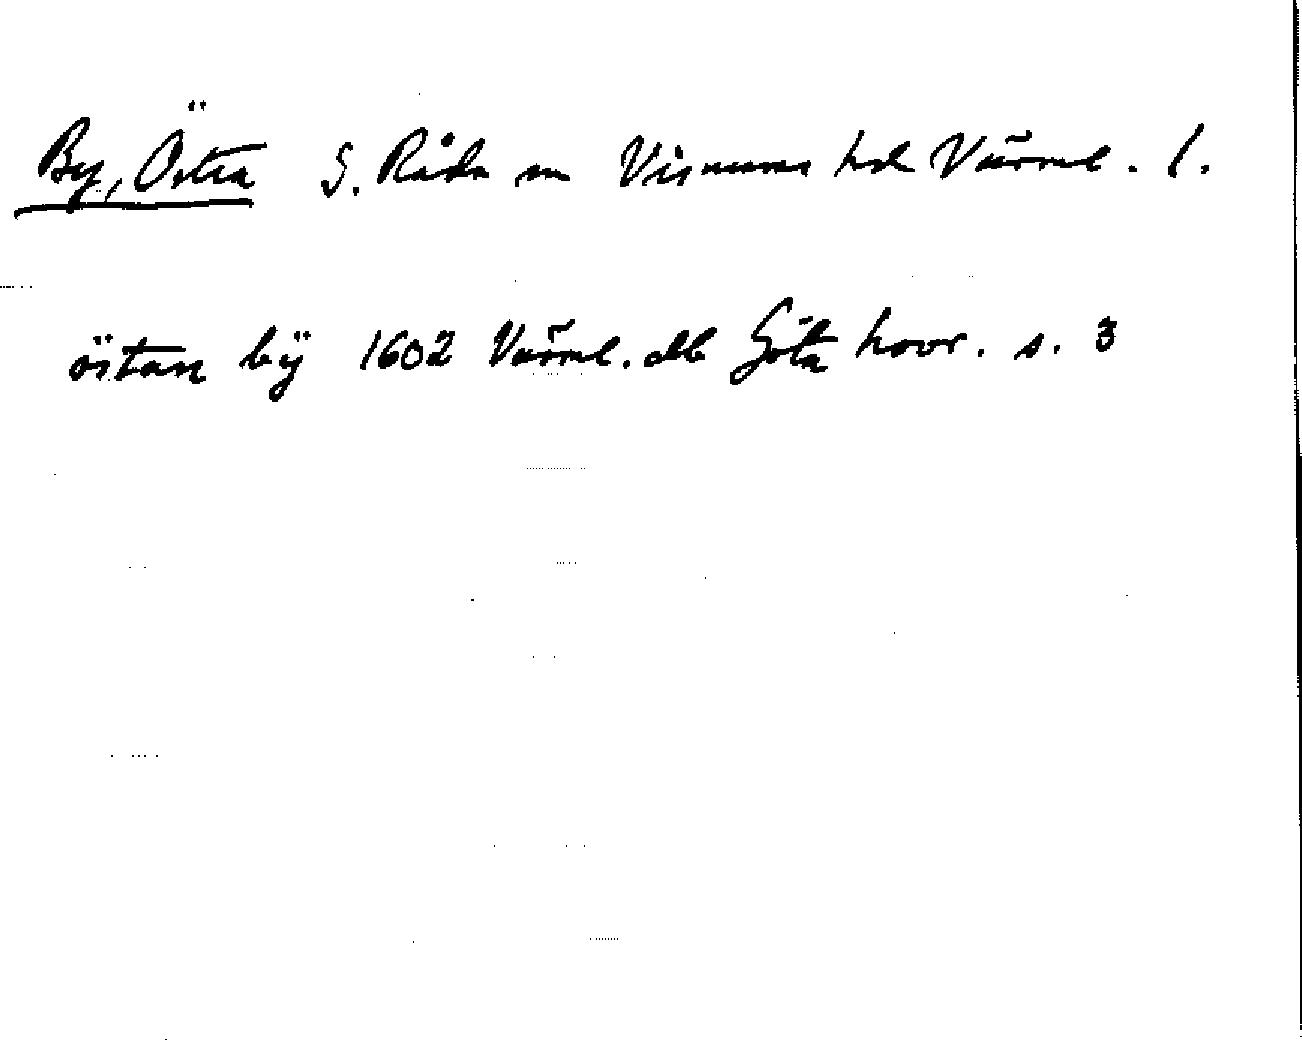 By, Östra S. Råda sn Visnums hd Värml. l.
östan bÿ 1602 Värml. db Göta hovr. s. 3